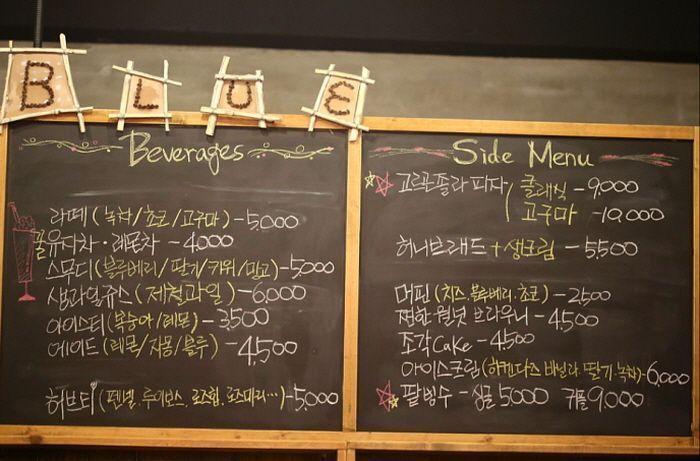 BLUE
Beverages
라떼 (녹차/초코/고구마) - 5,000
유자차 · 레몬차 - 4,000
스무디 (블루베리/딸기/키위/망고) - 5,000
생과일쥬스 (제철과일) - 6,000
아이스티 (복숭아/레몬) - 3,500
에이드 (레몬/자몽/블루) - 4,500
허브티 (펜넬, 루이보스, 로즈힙, 로즈마리...) - 5,000
Side Menu
고르곤졸라 피자 ( 클래식 - 9,000
고구마 - 10,000
허니브래드 + 생크림 - 5,500
머핀 (치즈, 블루베리, 초코) - 2,500
찐한 월넛 브라우니 - 4,500
조각 Cake - 4,500
아이스크림 (하겐다즈 바닐라, 딸기, 녹차) - 6,000
팥빙수 - 싱글 5,000 커플 9,000